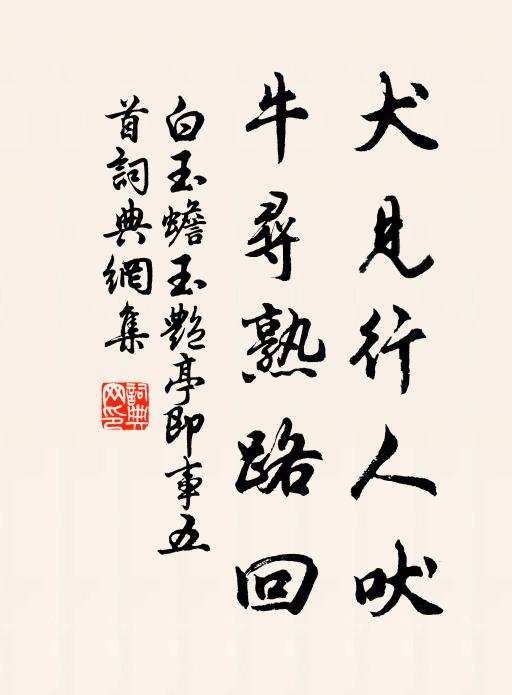 犬見行人吠
牛尋熟路回
白玉蟾玉艷亭即事五
首詞典網集
詞典
网印